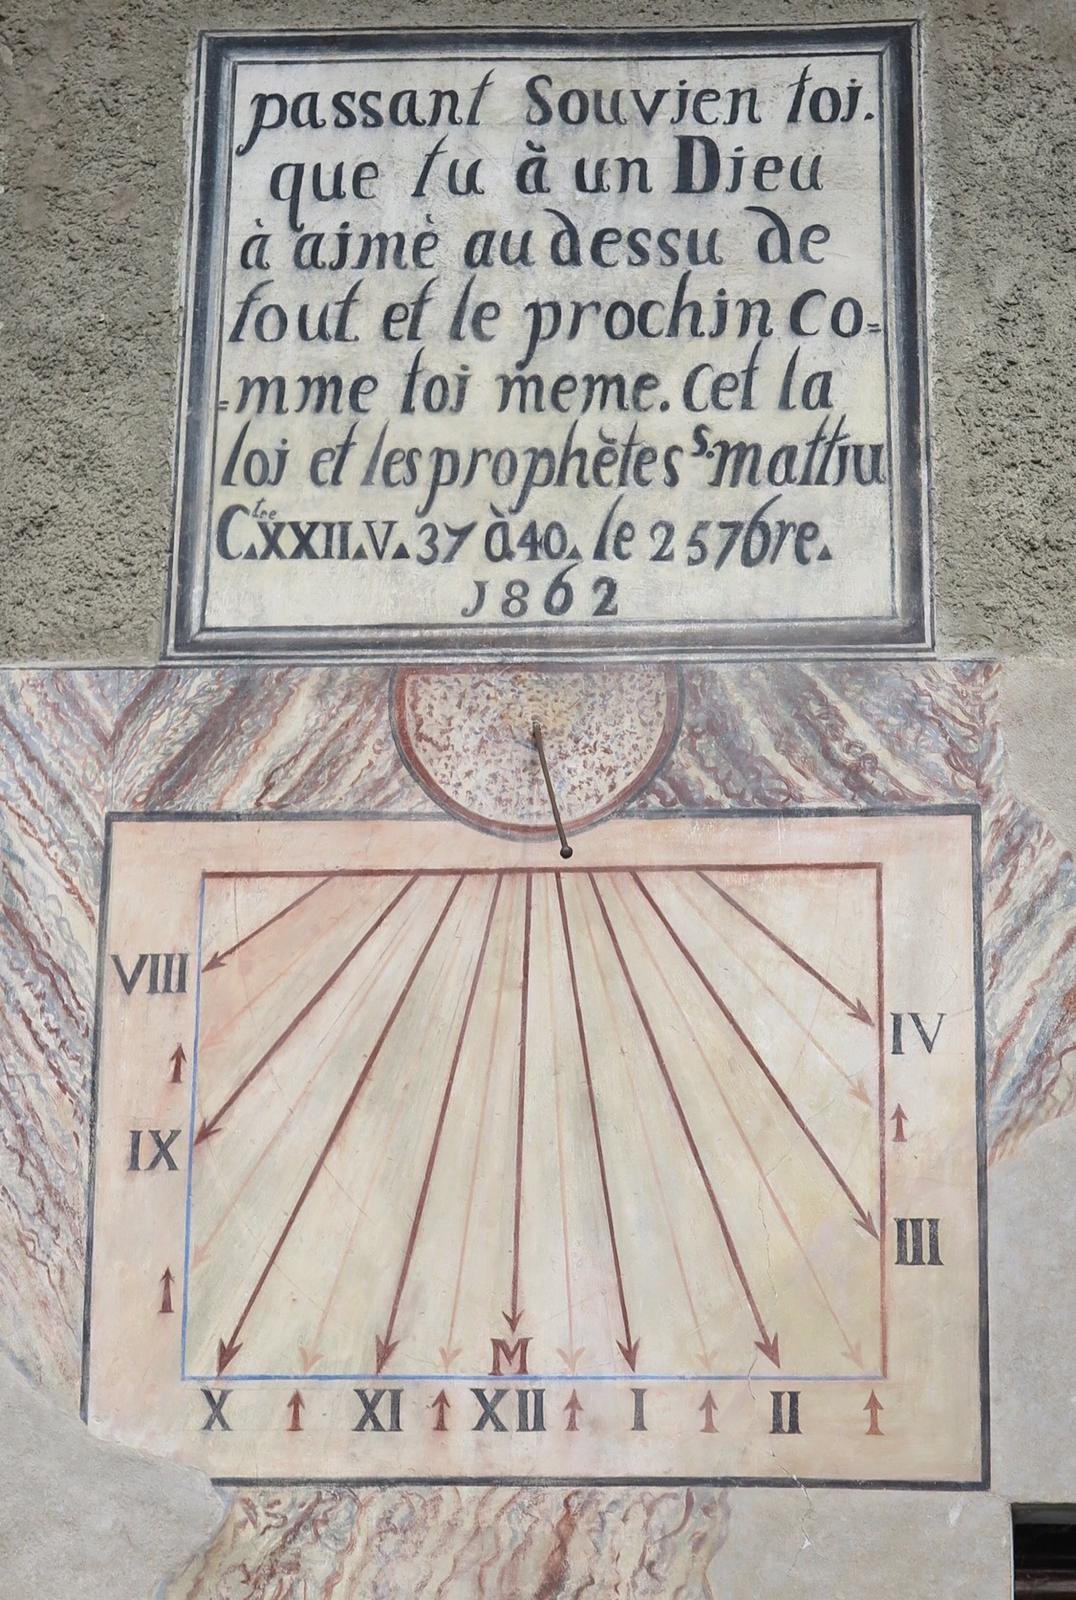 passant Souvien toi.
que tu à un Dieu
à aimè au dessu de
tout et le prochin co=
=mme toi meme. Cet la
loi et les prophètes S. mattiu
Ctre XXII. V. 37 à 40. le 25 7bre.
1862
VIII
IV
IX
III
M
X XI XII I II